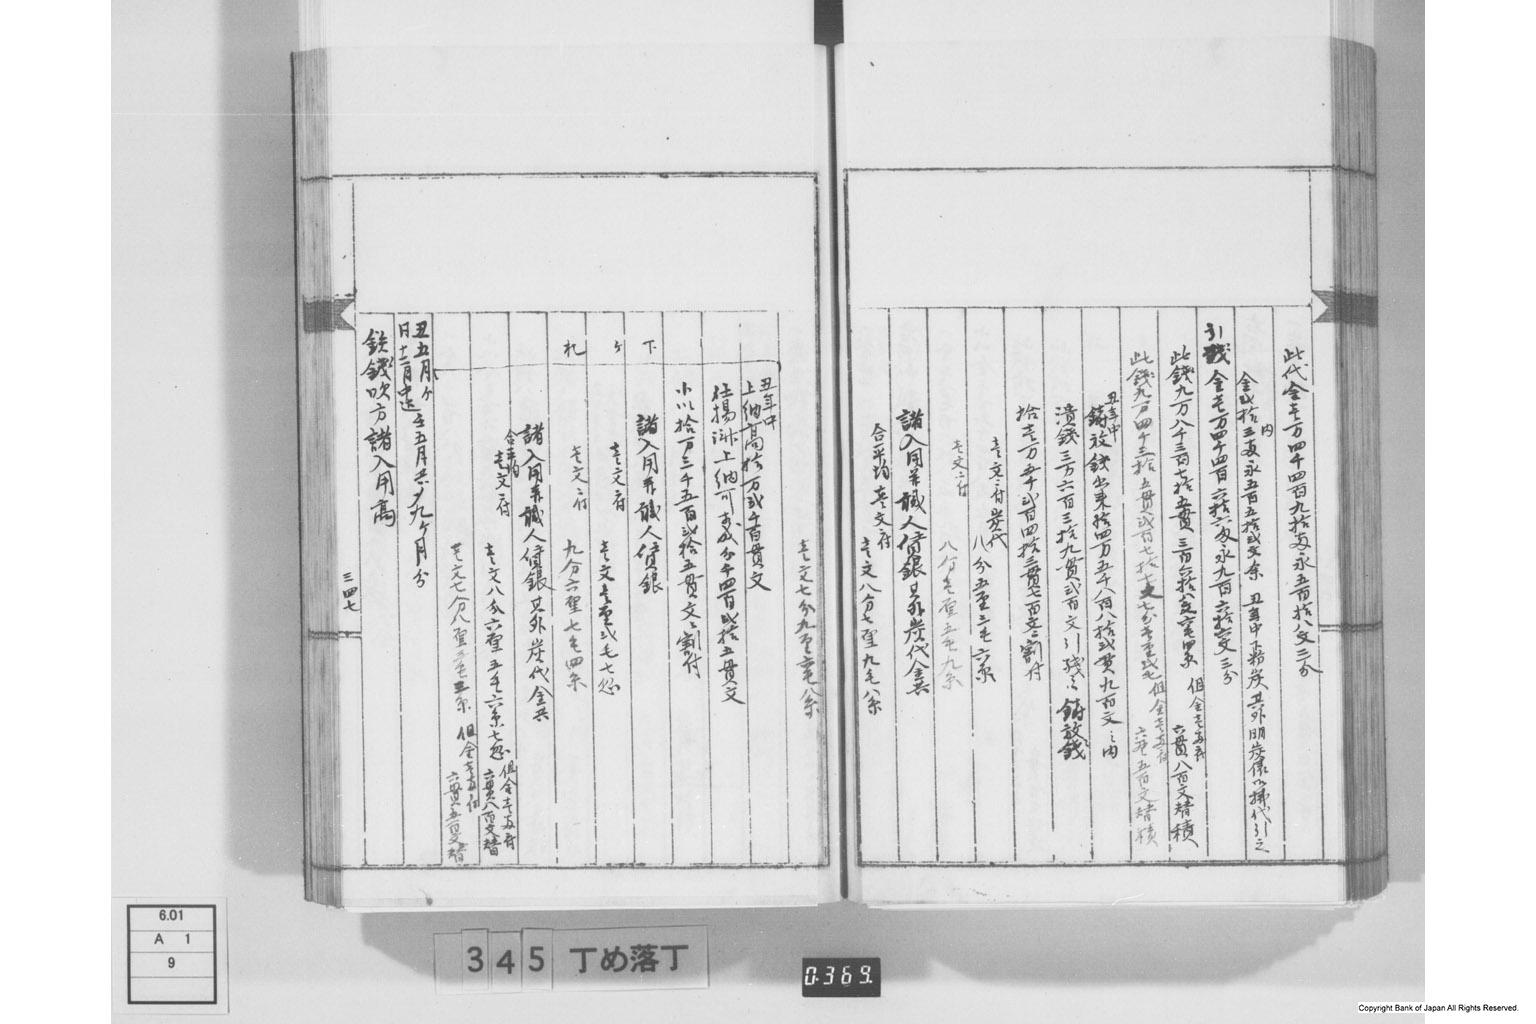 此代金壱万四千四百九拾両永五百拾八文三分
内
金弐拾三両永五百五拾弐文余 丑年中 炭其外明炭俵御払代引之
引残金壱万四千四百六拾六両永九百六拾六文三分
此銭九万八千三百七拾五貫三百六拾八文六毛四糸 但金壱両ニ付
六貫八百文替積
此銭九万四千三拾五貫弐百七拾七文七分壱厘弐毛 但金壱両ニ付
六貫五百文替積
丑年中
鋳放銭出来拾四万五千八百八拾弐貫九百文之内
潰銭三万六百三拾九貫弐百文引残而鋳放銭
拾壱万五千弐百四拾三貫七百文ニ割付
壱文ニ付炭代
八分五厘三毛六糸
壱文ニ付
八分壱厘五毛九糸
諸入用并職人賃銀其外炭代金共
合平均壱文ニ付
壱文八分七厘九毛八糸
壱文七分九厘六毛八糸
丑年中
上納高拾万弐千百貫文
仕揚済上納可相成分千四百弐拾五貫文
小以拾万三千五百弐拾五貫文ニ割付
下 諸入用并職人賃銀
ケ 壱文ニ付
壱文壱厘弐毛七忽
札 壱文ニ付
九分六厘七毛四糸
諸入用并職人賃銀其外炭代金共
合平均
壱文ニ付
壱文八分六厘五毛六糸七忽 但金壱両ニ付
六貫八百文替
壱文七分八厘三毛三糸 但金壱両ニ付
六貫五百文替
丑五月ゟ
同十二月中迄 壬五月共 九ケ月分
鉄銭吹方諸入用高
三四七
6.01
A 1
9
345 丁め落丁
0.369.
Copyright Bank of Japan All Rights Reserved.